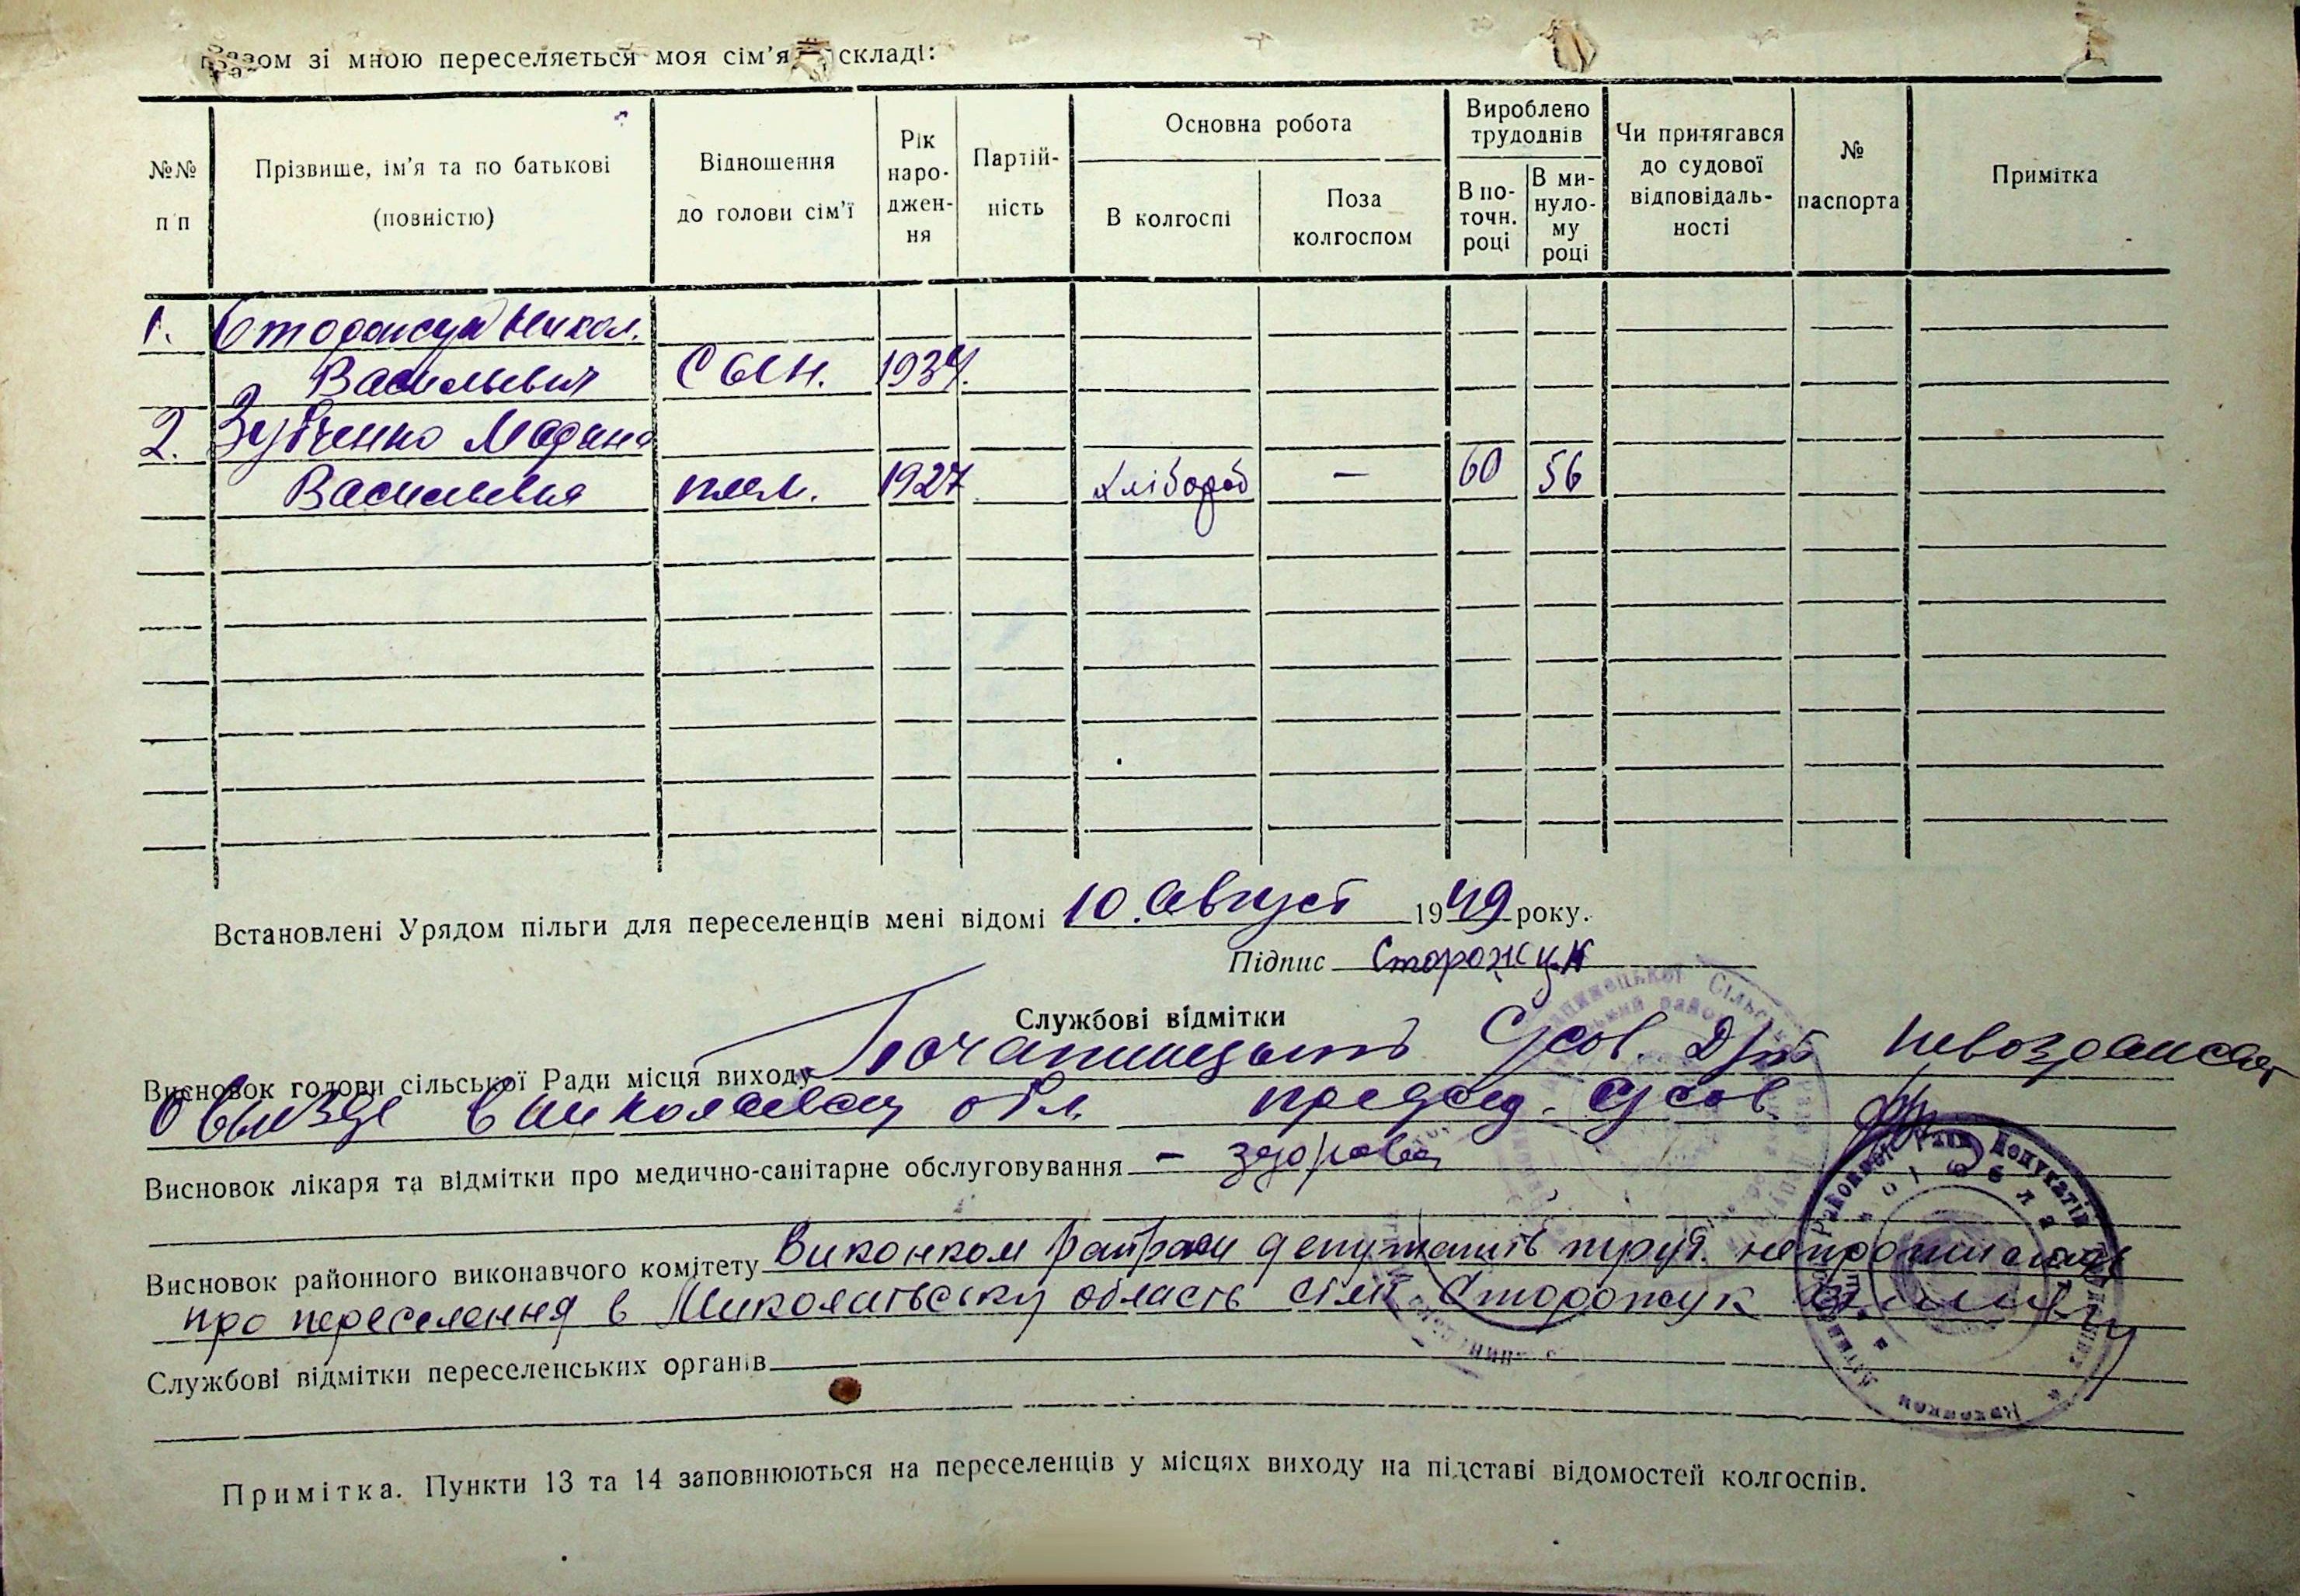 Разом зі мною переселяється моя сім'я в складі:
№№ п п
Прізвище, ім'я та по батькові (повністю)
Відношення до голови сім'ї
Рік народження
Партійність
Основна робота
В колгоспі
Поза колгоспом
Вироблено трудоднів
В поточн. році
В минулому році
Чи притягався до судової відповідальності
№ паспорта
Примітка
1.
Васильевич Сын. 1934.
2. Зубченко
Васильевна плем. 1927 хлібороб — 60 56
Встановлені Урядом пільги для переселенців мені відомі 10. Август 1949 року.
Підпис Сторожук
Службові відмітки
Висновок голови сільської Ради місця виходу
О выезде в Николаевск обл. председ. с/сов.
Висновок лікаря та відмітки про медично-санітарне обслуговування — здорова
Висновок районного виконавчого комітету Виконком райради депутатів труд. не
про переселення в Миколаївську область сімї Сторожук
Службові відмітки переселенських органів
Примітка. Пункти 13 та 14 заповнюються на переселенців у місцях виходу на підставі відомостей колгоспів.